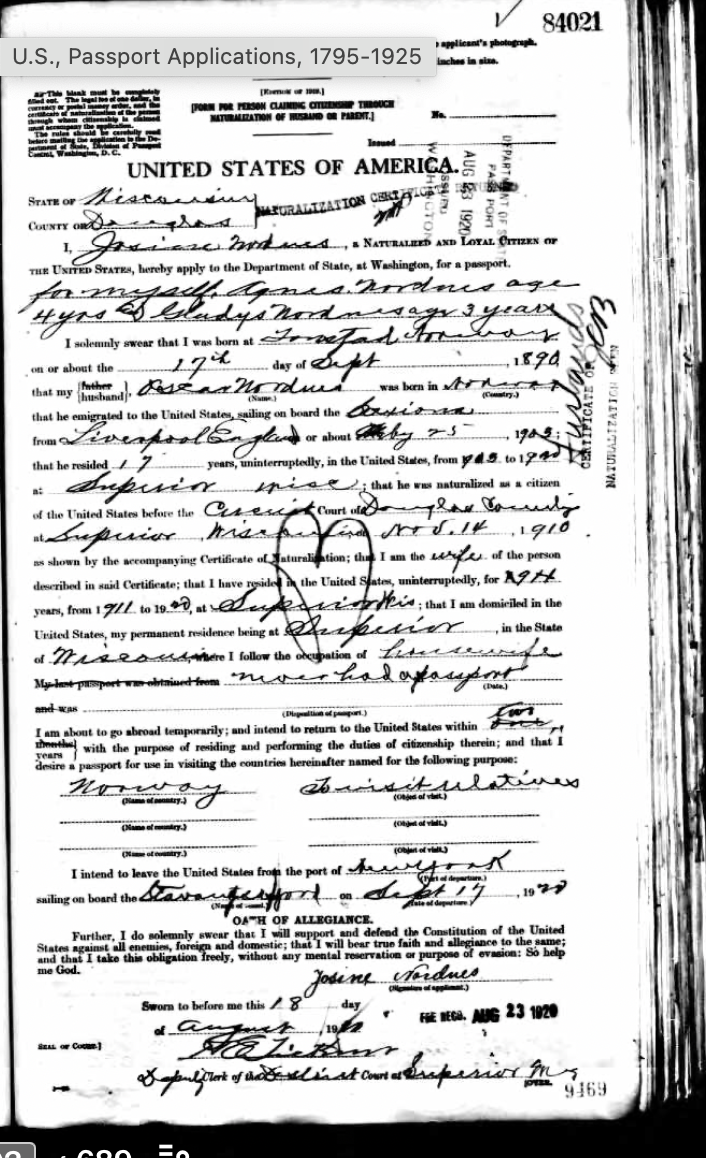 84021
U.S., Passport Applications, 1795-1925
applicant's photograph.
inches in size.
This blank must be completely
filled out. The legal fee of one dollar, in
currency or postal money order, and the
certificate of naturalization of the person
through whom citizenship is claimed
must accompany the application.
The rules should be carefully read
before mailing the application to the De-
partment of State, Division of Passport
Control, Washington, D. C.
[EDITION OF 1919.]
[FORM FOR PERSON CLAIMING CITIZENSHIP THROUGH
NATURALIZATION OF HUSBAND OR PARENT.]
No.
Issued
UNITED STATES OF AMERICA.
DEPARTMENT OF STATE
PASSPORT
AUG 23 1920
ISSUED
WASHINGTON
STATE OF Wisconsin
NATURALIZATION CERTIFICATE
COUNTY OF Douglas
I, Josine Nordnes, a NATURALIZED AND LOYAL CITIZEN OF
THE UNITED STATES, hereby apply to the Department of State, at Washington, for a passport.
for myself. Agnes Nordnes age
4 yrs Gladys Nordnes age 3 years
I solemnly swear that I was born at Tonstad Norway
on or about the 17th day of Sept, 1890
that my {father husband}, Oscar Nordnes was born in Norway
(Name.) (Country.)
that he emigrated to the United States, sailing on board the
from Liverpool England or about 25, 1903;
that he resided 17 years, uninterruptedly, in the United States, from 1903 to 1920
at Superior Wisc; that he was naturalized as a citizen
of the United States before the Circuit Court of Douglas County
at Superior, Wisconsin Nov. 14, 1910
as shown by the accompanying Certificate of Naturalization; that I am the wife of the person
described in said Certificate; that I have resided in the United States, uninterruptedly, for
years, from 1911 to 1920, at Superior Wis; that I am domiciled in the
United States, my permanent residence being at Superior, in the State
of Wisconsin, where I follow the occupation of housewife
My last passport was obtained from never had a passport
(Date.)
and was
(Disposition of passport.)
I am about to go abroad temporarily; and intend to return to the United States within two one
{months years} with the purpose of residing and performing the duties of citizenship therein; and that I
desire a passport for use in visiting the countries hereinafter named for the following purpose:
Norway To visit relatives
(Name of country.) (Object of visit.)
(Name of country.) (Object of visit.)
(Name of country.) (Object of visit.)
I intend to leave the United States from the port of New York
(Port of departure.)
sailing on board the Stavangerfjord on Sept 17, 1920
(Name of vessel.) (Date of departure.)
OATH OF ALLEGIANCE.
Further, I do solemnly swear that I will support and defend the Constitution of the United
States against all enemies, foreign and domestic; that I will bear true faith and allegiance to the same;
and that I take this obligation freely, without any mental reservation or purpose of evasion: So help
me God.
Josine Nordnes
(Signature of applicant.)
Sworn to before me this 18 day
of August, 19
FEE RECD. AUG 23 1920
SEAL OF COURT.]
Deputy Clerk of the District Court at Superior
9469
CERTIFICATE OF
NATURALIZATION SEEN
689